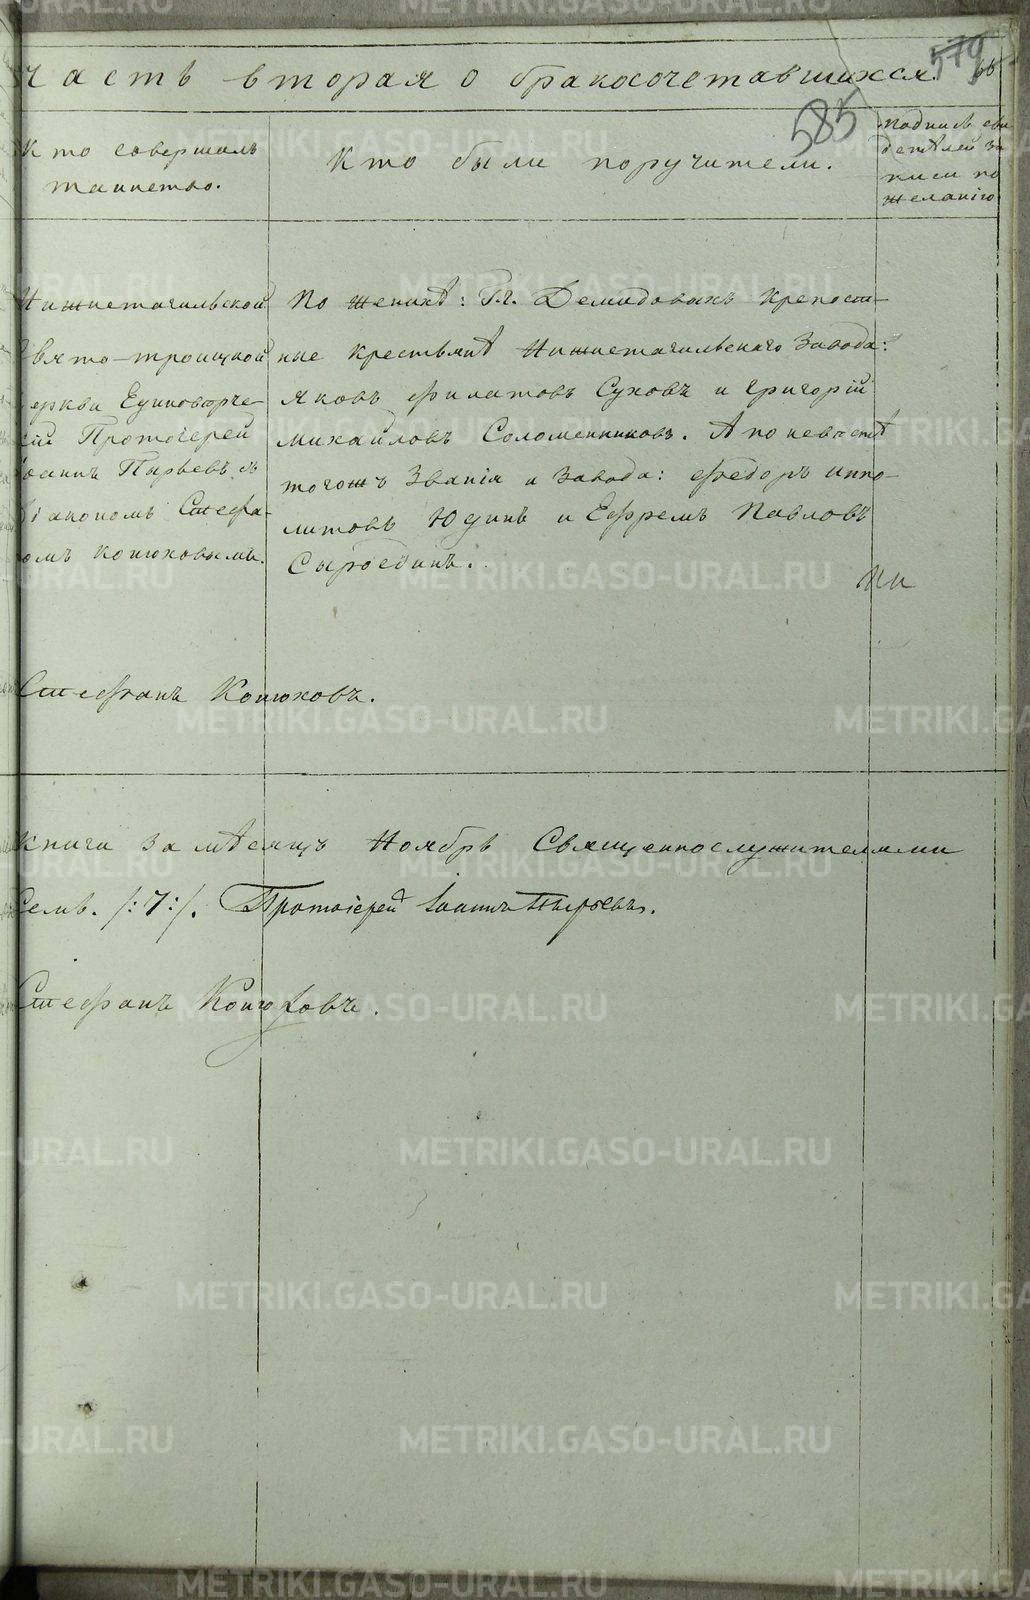 часть вторая о бракосочетавшихся.
579
585
Кто совершалъ
таинство.
Кто были поручители.
подпись сви
детѣлей за
писи по
желанію
Нижнетагильской
Свято-троицкой
церкви Единоверче-
ской Протоіерей
Іоаннъ Пырьевъ съ
Діакономъ Стефа-
номъ Конюховымъ.
По женихѣ: Гг. Демидовыхъ крепост-
ные крестьянѣ Нижнетагильскаго Завода:
Яковъ Филатовъ Суховъ и Григорій
Михайловъ Соломенниковъ. А по невѣстѣ
тогожъ Званія и Завода: Федоръ Иппо-
литовъ Юдинъ и Ефремъ Павловъ
Сыроединъ.
Стефанъ Конюховъ.
книги за мѣсяцъ Ноябрь Священнослужителями
Семь. /:7:/. Протоіерей Іоаннъ Пырьевъ.
Стефанъ Конюховъ.
METRIKI.GASO-URAL.RU